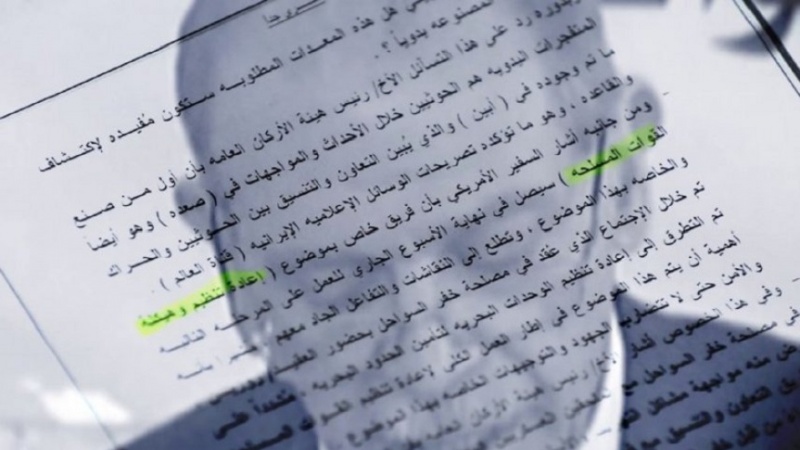 هل هذه المعدات المطلوبه ستكون مفيده لإكتشاف
المتفجرات اليدويه
المصنوعه يدوياً ؟ .
رد على هذا التسائل الأخ/ رئيس هيئة الأركان العامه بأن أول من صنع
هم الحوثيين خلال الأحداث والمواجهات في ( صعده ) وهو أيضاً
ما تم وجوده في ( أبين ) والذي يُبين التعاون والتنسيق بين الحوثيين والحراك
والقاعده ، وهو ما تؤكده تصريحات الوسائل الإعلاميه الإيرانيه ( قناة العالم ) .
- ومن جانبه أشار السفير الأمريكي بأن فريق خاص بموضوع ( إعادة تنظيم وهيكلة
القوات المسلحه ) سيصل في نهاية الأسبوع الجاري للعمل على المرحله التاليه
والخاصه بهذا الموضوع ، ونتطلع إلى النقاشات والتفاعل الجاد معهم
تم خلال الإجتماع الذي عُقد في مصلحة خفر السواحل بحضور العقيد/
تم التطرق إلى إعادة تنظيم الوحدات البحريه لتأمين الحدود البحريه ،
أهمية أن يتم هذا الموضوع في إطار العمل الكلي لإعادة تنظيم القوات
والأمن حتى لا تتضارب الجهود والتوجيهات الخاصه بهذا الموضوع
- وفي هذا الخصوص أشار الأخ/ رئيس هيئة الأركان العامه
في مصلحة خفر السواحل مع
منه مواجهة مشاكل
التعاون والتنسيق مع
من قبل